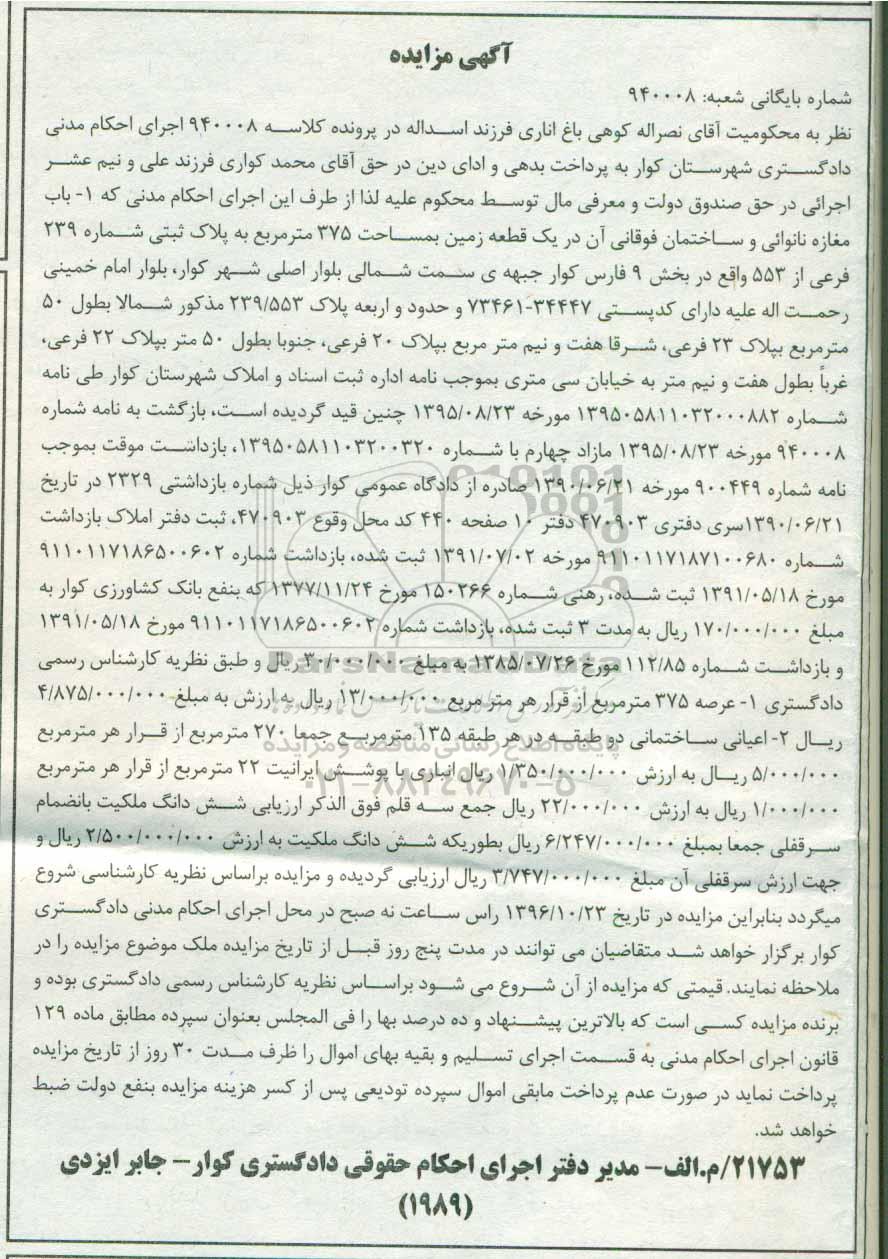 آگهی مزایده
شماره بایگانی شعبه: ۹۴۰۰۰۸
نظر به محکومیت آقای نصراله کوهی باغ اناری فرزند اسداله در پرونده کلاسه ۹۴۰۰۰۸ اجرای احکام مدنی
دادگستری شهرستان کوار به پرداخت بدهی و ادای دین در حق آقای محمد کواری فرزند علی و نیم عشر
اجرائی در حق صندوق دولت و معرفی مال توسط محکوم علیه لذا از طرف این اجرای احکام مدنی که ۱- باب
مغازه نانوائی و ساختمان فوقانی آن در یک قطعه زمین بمساحت ۳۷۵ مترمربع به پلاک ثبتی شماره ۲۳۹
فرعی از ۵۵۳ واقع در بخش ۹ فارس کوار جبهه ی سمت شمالی بلوار اصلی شهر کوار، بلوار امام خمینی
رحمت اله علیه دارای کدپستی ۳۴۴۴۷-۷۳۴۶۱ و حدود و اربعه پلاک ۲۳۹/۵۵۳ مذکور شمالا بطول ۵۰
مترمربع بپلاک ۲۳ فرعی، شرقا هفت و نیم متر مربع بپلاک ۲۰ فرعی، جنوبا بطول ۵۰ متر بپلاک ۲۲ فرعی،
غرباً بطول هفت و نیم متر به خیابان سی متری بموجب نامه اداره ثبت اسناد و املاک شهرستان کوار طی نامه
شماره ۱۳۹۵۰۵۸۱۱۰۳۲۰۰۰۸۸۲ مورخه ۱۳۹۵/۰۸/۲۳ چنین قید گردیده است، بازگشت به نامه شماره
۹۴۰۰۰۸ مورخه ۱۳۹۵/۰۸/۲۳ مازاد چهارم با شماره ۱۳۹۵۰۵۸۱۱۰۳۲۰۰۳۲۰، بازداشت موقت بموجب
نامه شماره ۹۰۰۴۴۹ مورخه ۱۳۹۰/۰۶/۲۱ صادره از دادگاه عمومی کوار ذیل شماره بازداشتی ۲۳۲۹ در تاریخ
۱۳۹۰/۰۶/۲۱سری دفتری ۴۷۰۹۰۳ دفتر ۱۰ صفحه ۴۴۰ کد محل وقوع ۴۷۰۹۰۳، ثبت دفتر املاک بازداشت
شماره ۹۱۱۰۱۱۷۱۸۷۱۰۰۶۸۰ مورخه ۱۳۹۱/۰۷/۰۲ ثبت شده، بازداشت شماره ۹۱۱۰۱۱۷۱۸۶۵۰۰۶۰۲
مورخ ۱۳۹۱/۰۵/۱۸ ثبت شده، رهنی شماره ۱۵۰۲۶۶ مورخ ۱۳۷۷/۱۱/۲۴ که بنفع بانک کشاورزی کوار به
مبلغ ۱۷۰/۰۰۰/۰۰۰ ریال به مدت ۳ ثبت شده، بازداشت شماره ۹۱۱۰۱۱۷۱۸۶۵۰۰۶۰۲ مورخ ۱۳۹۱/۰۵/۱۸
و بازداشت شماره ۱۱۲/۸۵ مورخ ۱۳۸۵/۰۷/۲۶ به مبلغ ۳۰/۰۰۰/۰۰۰ ریال و طبق نظریه کارشناس رسمی
دادگستری ۱- عرصه ۳۷۵ مترمربع از قرار هر متر مربع ۱۳/۰۰۰/۰۰۰ ریال به ارزش به مبلغ ۴/۸۷۵/۰۰۰/۰۰۰
ریال ۲- اعیانی ساختمانی دو طبقه در هر طبقه ۱۳۵ مترمربع جمعا ۲۷۰ مترمربع از قرار هر مترمربع
۵/۰۰۰/۰۰۰ ریال به ارزش ۱/۳۵۰/۰۰۰/۰۰۰ ریال انباری با پوشش ایرانیت ۲۲ مترمربع از قرار هر مترمربع
۱/۰۰۰/۰۰۰ ریال به ارزش ۲۲/۰۰۰/۰۰۰ ریال جمع سه قلم فوق الذکر ارزیابی شش دانگ ملکیت بانضمام
سرقفلی جمعا بمبلغ ۶/۲۴۷/۰۰۰/۰۰۰ ریال بطوریکه شش دانگ ملکیت به ارزش ۲/۵۰۰/۰۰۰/۰۰۰ ریال و
جهت ارزش سرقفلی آن مبلغ ۳/۷۴۷/۰۰۰/۰۰۰ ریال ارزیابی گردیده و مزایده براساس نظریه کارشناسی شروع
میگردد بنابراین مزایده در تاریخ ۱۳۹۶/۱۰/۲۳ راس ساعت نه صبح در محل اجرای احکام مدنی دادگستری
کوار برگزار خواهد شد متقاضیان می توانند در مدت پنج روز قبل از تاریخ مزایده ملک موضوع مزایده را در
ملاحظه نمایند. قیمتی که مزایده از آن شروع می شود براساس نظریه کارشناس رسمی دادگستری بوده و
برنده مزایده کسی است که بالاترین پیشنهاد و ده درصد بها را فی المجلس بعنوان سپرده مطابق ماده ۱۲۹
قانون اجرای احکام مدنی به قسمت اجرای تسلیم و بقیه بهای اموال را ظرف مدت ۳۰ روز از تاریخ مزایده
پرداخت نماید در صورت عدم پرداخت مابقی اموال سپرده تودیعی پس از کسر هزینه مزایده بنفع دولت ضبط
خواهد شد.
۲۱۷۵۳/م.الف- مدیر دفتر اجرای احکام حقوقی دادگستری کوار- جابر ایزدی
(۱۹۸۹)
ParsNamadData
پایگاه اطلاع رسانی مناقصه و مزایده
۰۲۱-۸۸۳۴۹۶۷۰-۵